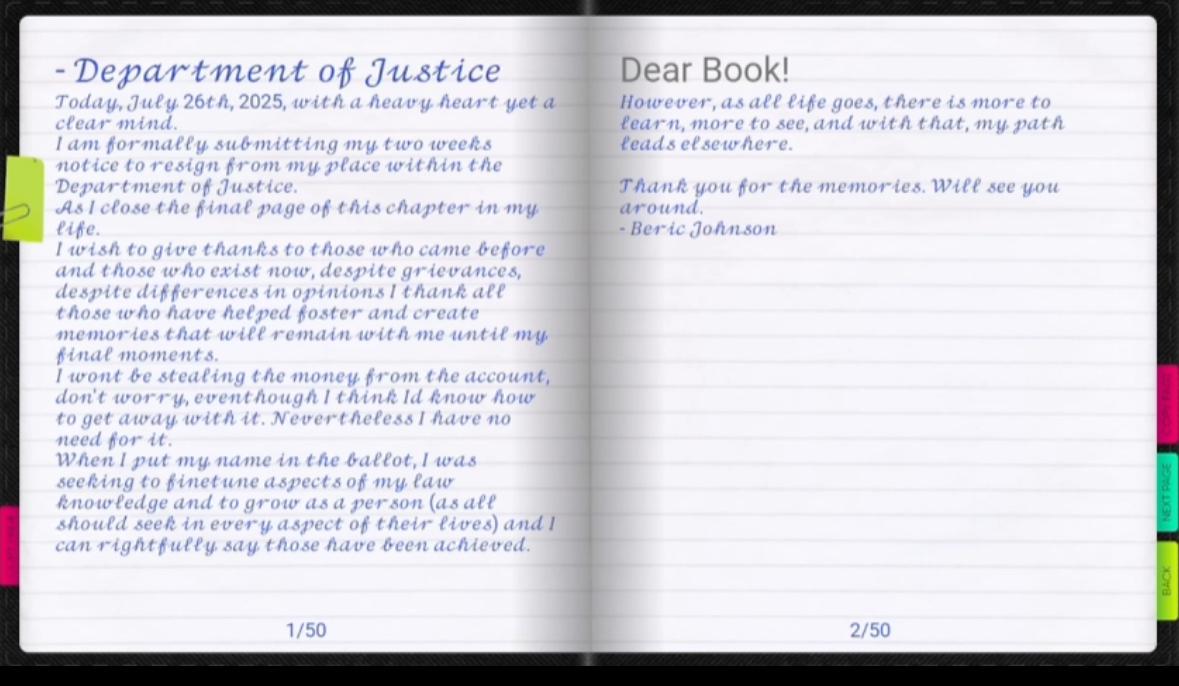 - Department of Justice
Today, July 26th, 2025, with a heavy heart yet a
clear mind.
I am formally submitting my two weeks
notice to resign from my place within the
Department of Justice.
As I close the final page of this chapter in my
life.
I wish to give thanks to those who came before
and those who exist now, despite grievances,
despite differences in opinions I thank all
those who have helped foster and create
memories that will remain with me until my
final moments.
I wont be stealing the money from the account,
don't worry, eventhough I think Id know how
to get away with it. Nevertheless I have no
need for it.
When I put my name in the ballot, I was
seeking to finetune aspects of my law
knowledge and to grow as a person (as all
should seek in every aspect of their lives) and I
can rightfully say those have been achieved.
1/50
Dear Book!
However, as all life goes, there is more to
learn, more to see, and with that, my path
leads elsewhere.
Thank you for the memories. Will see you
around.
- Beric Johnson
2/50
COPY PAGE
NEXT PAGE
BACK